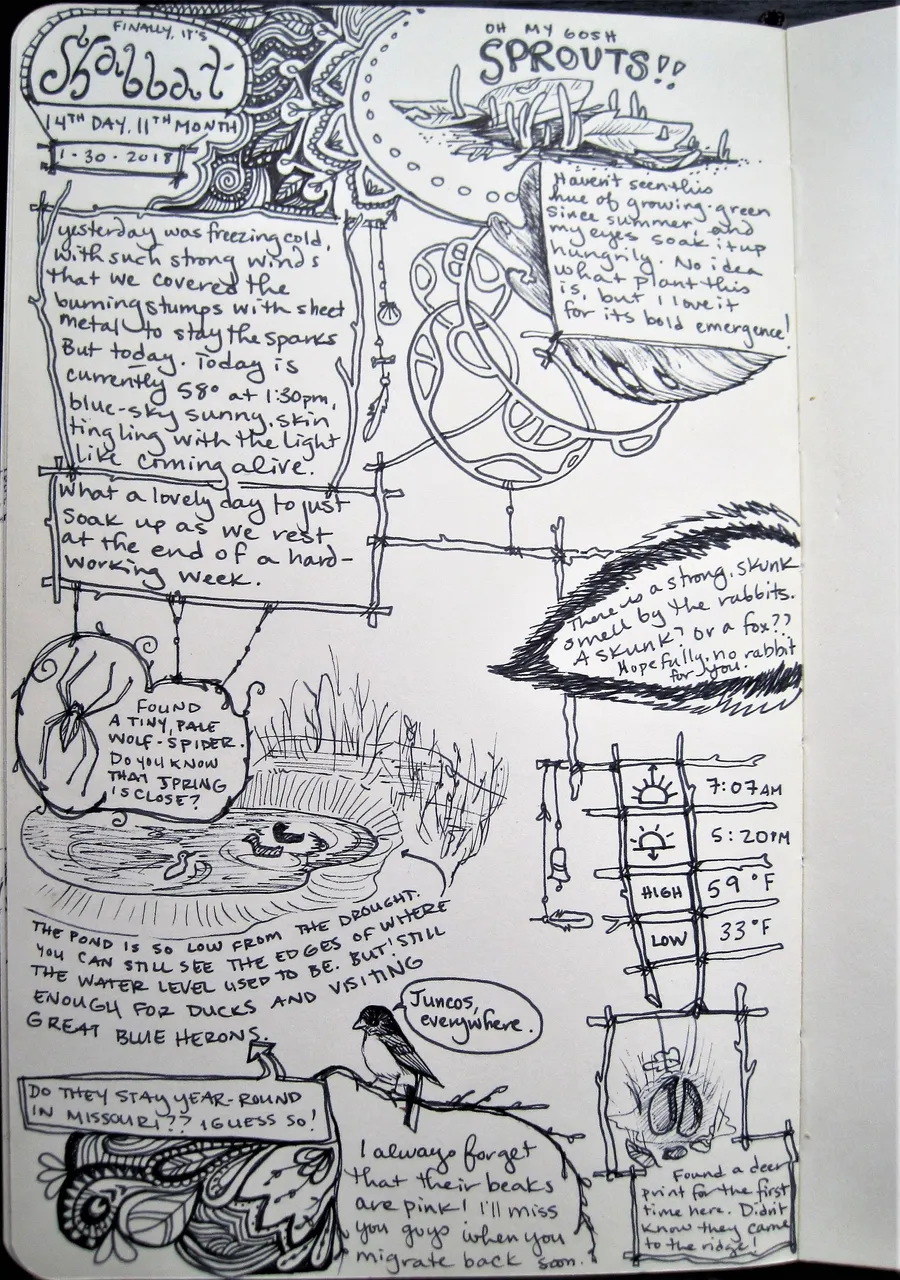 FINALLY, IT'S
Shabbat
14TH DAY, 11TH MONTH
1·30·2018
OH MY GOSH
SPROUTS!!
Haven't seen this
hue of growing-green
since summer, and
my eyes soak it up
hungrily. No idea
what plant this
is, but I love it
for its bold emergence!
yesterday was freezing cold,
with such strong winds
that we covered the
burning stumps with sheet
metal to stay the sparks
But today. Today is
currently 58° at 1:30pm,
blue-sky sunny, skin
tingling with the light
like coming alive.
What a lovely day to just
soak up as we rest
at the end of a hard-
working week.
There is a strong, skunk
smell by the rabbits.
A skunk? or a fox??
Hopefully, no rabbit
for you.
FOUND
A TINY, PALE
WOLF-SPIDER.
DO YOU KNOW
THAT SPRING
IS CLOSE?
7:07AM
5:20PM
HIGH 59°F
LOW 33°F
THE POND IS SO LOW FROM THE DROUGHT.
YOU CAN STILL SEE THE EDGES OF WHERE
THE WATER LEVEL USED TO BE. BUT STILL
ENOUGH FOR DUCKS AND VISITING
GREAT BLUE HERONS
DO THEY STAY YEAR-ROUND
IN MISSOURI?? I GUESS SO!
Juncos,
everywhere.
I always forget
that their beaks
are pink! I'll miss
you guys when you
migrate back soon.
Found a deer
print for the first
time here. Didn't
know they came
to the ridge!